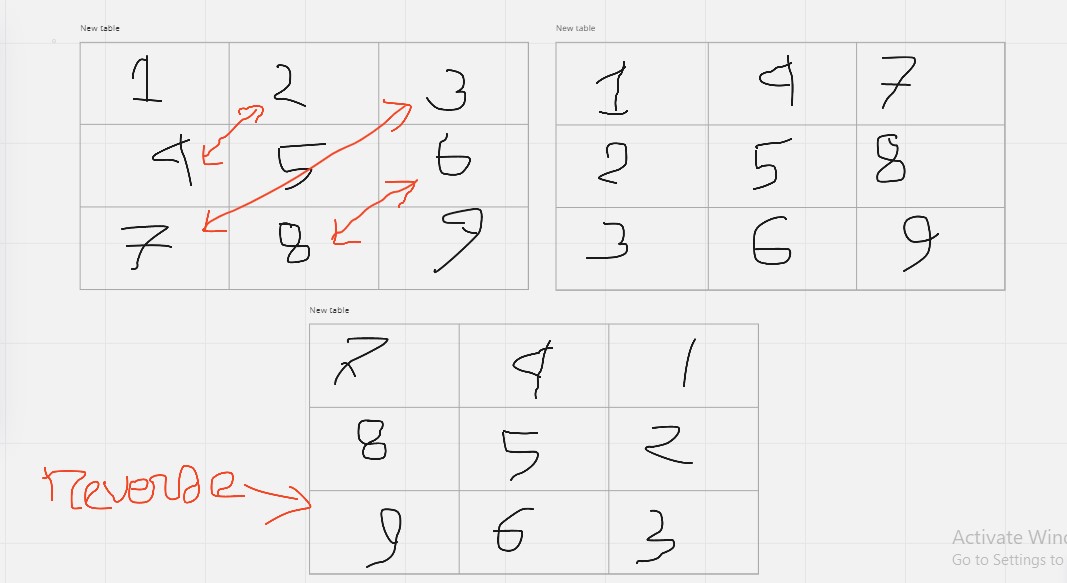 New table
1 2 3
4 5 6
7 8 9
New table
1 4 7
2 5 8
3 6 9
New table
7 4 1
8 5 2
9 6 3
reverse
Activate Wind
Go to Settings to